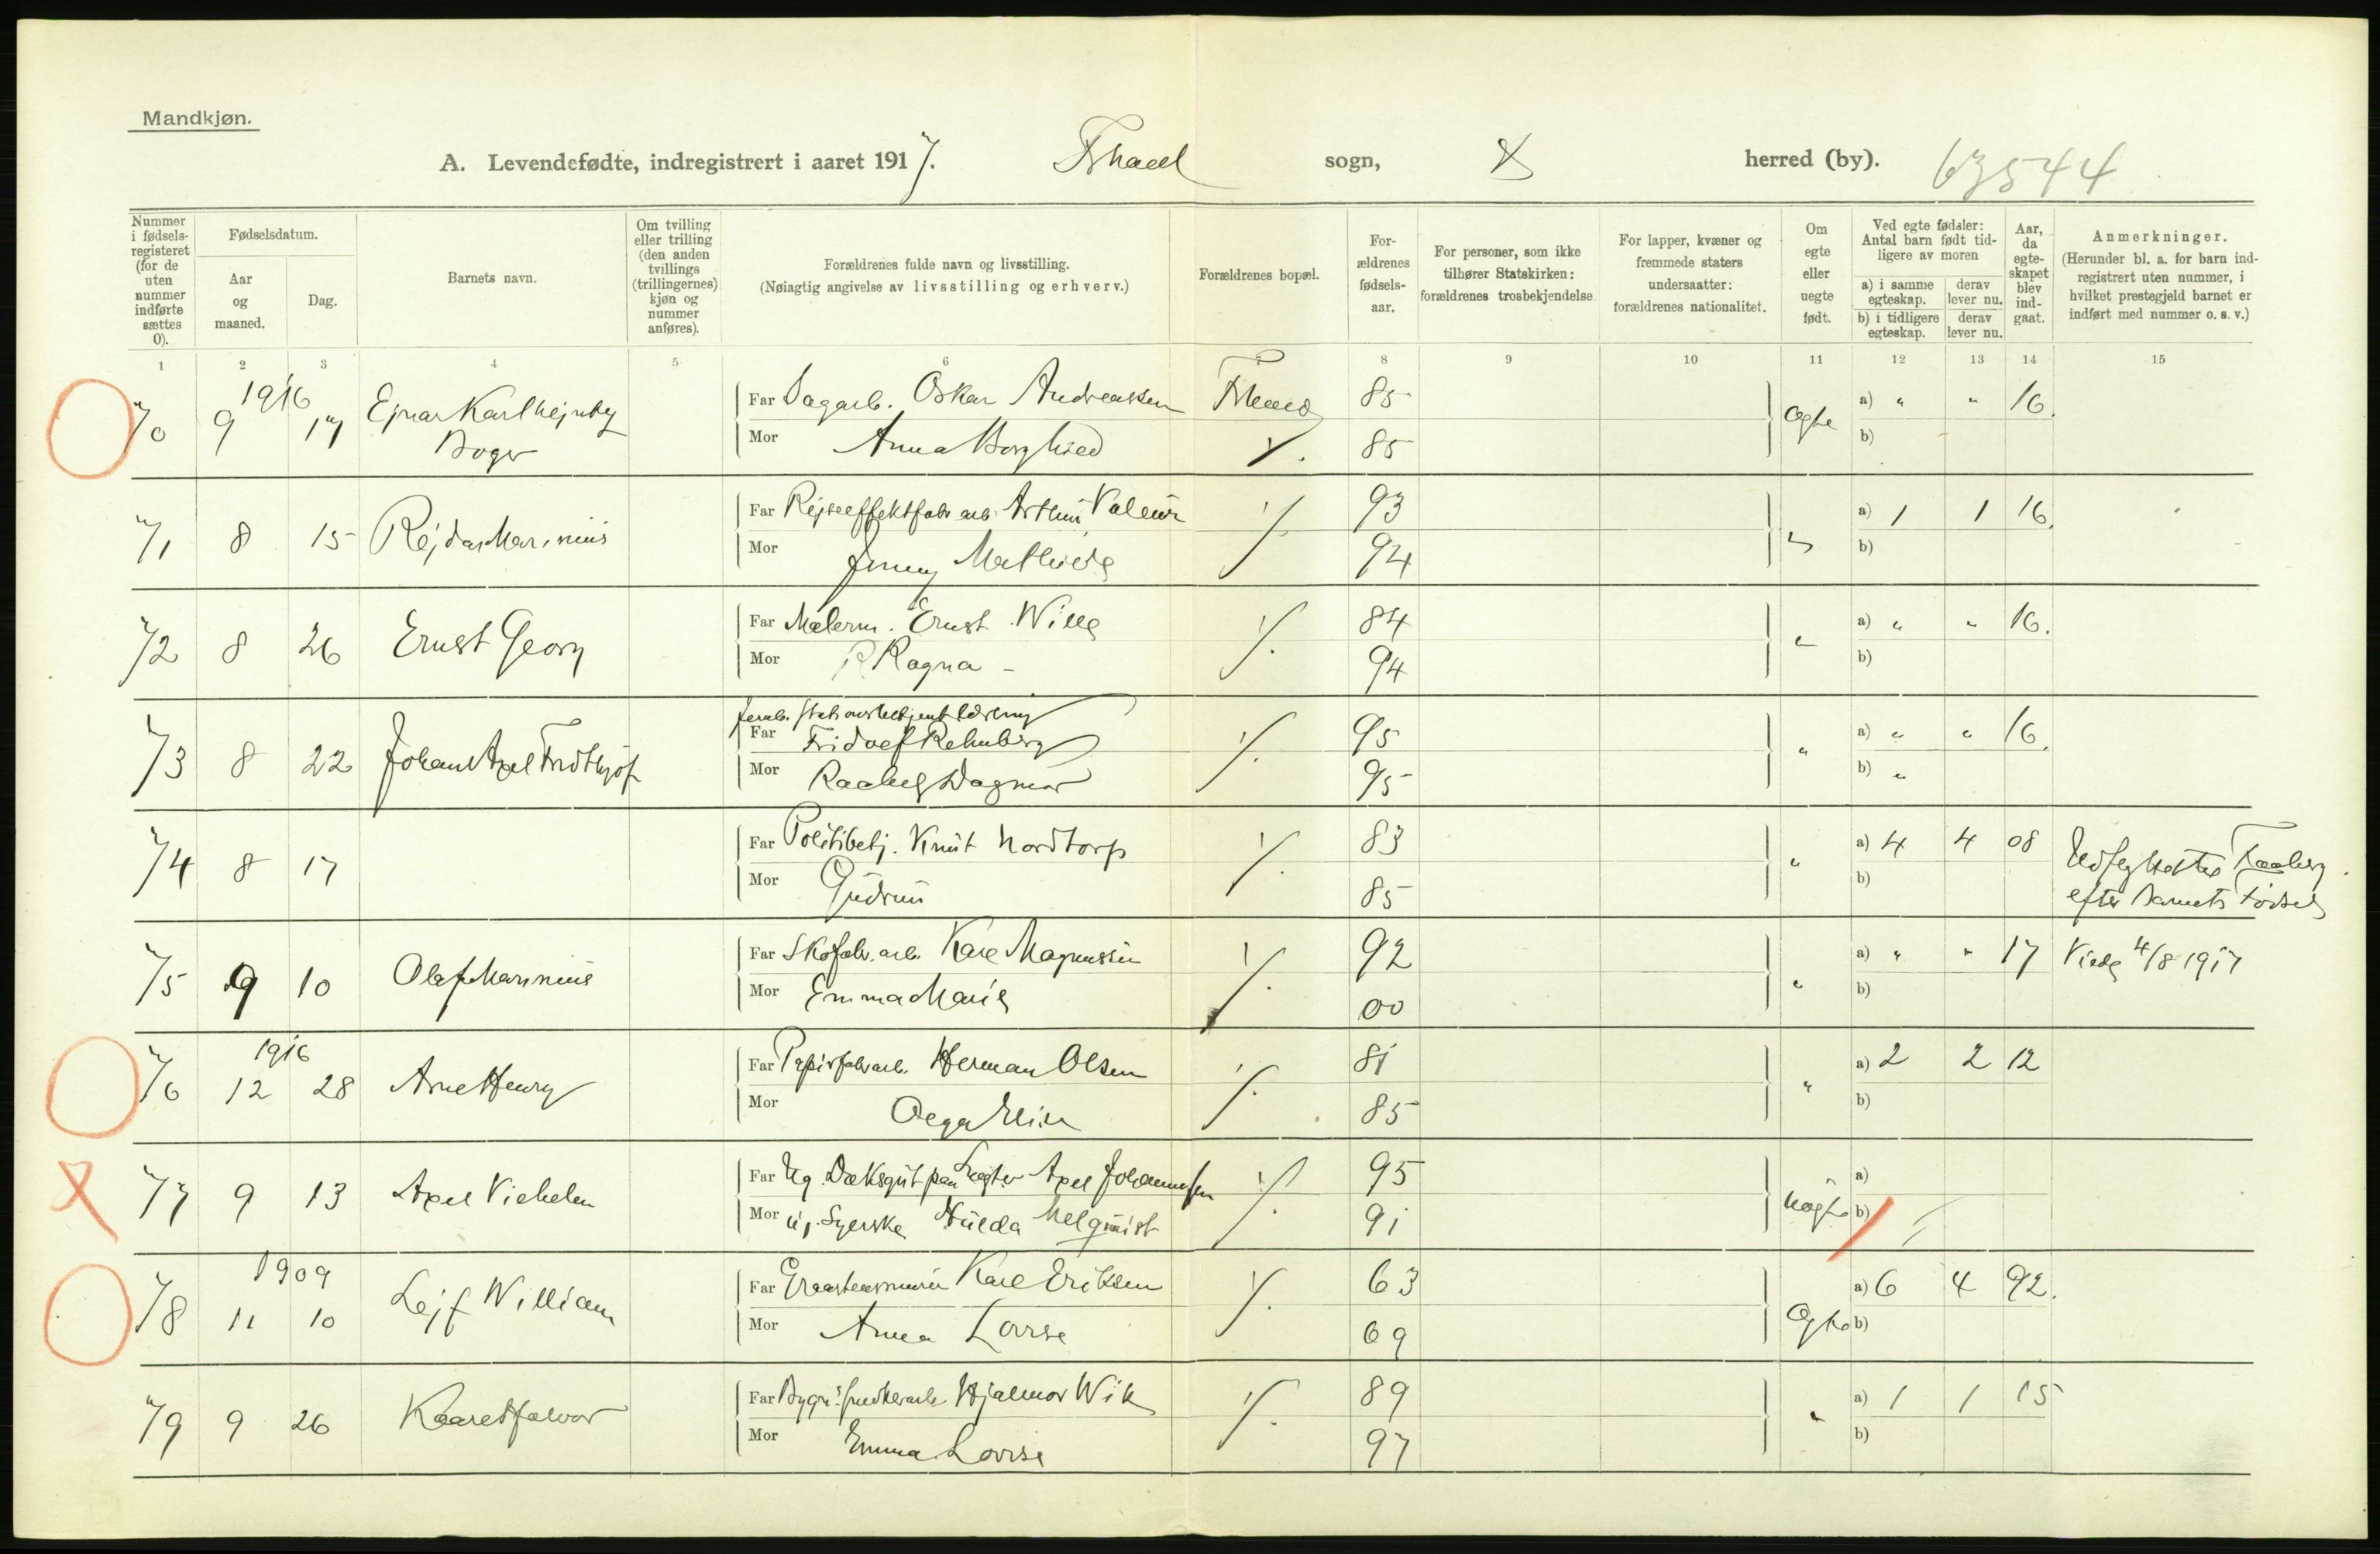 Mandkjøn.
A. Levendefødte, indregistrert i aaret 1917. sogn, herred (by). 63544
Nummer i fødsels-registeret (for de uten nummer indførte sættes 0).
Fødselsdatum.
Aar og maaned.
Dag.
Barnets navn.
Om tvilling eller trilling (den anden tvillings (trillingernes) kjøn og nummer anføres).
Forældrenes fulde navn og livsstilling.
(Nøiagtig angivelse av livsstilling og erhverv.)
Forældrenes bopæl.
For-ældrenes fødsels-aar.
For personer, som ikke tilhører Statskirken: forældrenes trosbekjendelse
For lapper, kvæner og fremmede staters undersaatter: forældrenes nationalitet.
Om egte eller uegte født.
Ved egte fødsler: Antal barn født tid-ligere av moren
a) i samme egteskap.
derav lever nu.
b) i tidligere egteskap.
derav lever nu.
Aar, da egte-skapet blev ind-gaat.
Anmerkninger.
(Herunder bl. a. for barn ind-registrert uten nummer, i hvilket prestegjeld barnet er indført med nummer o. s. v.)
1 2 3 4 5 6 7 8 9 10 11 12 13 14 15
1916
70 9 17 Ejnar Karl
Far Sagarb. Oskar Andreassen 85 Egte a) " " 16.
Mor Anna Borghild 85 b)
71 8 15 Rejdar Marinius
Far Rejseeffektfabr arb. Arthur 93 a) 1 1 16.
Mor Jenny Mathilde 94 b)
72 8 26 Ernst Georg
Far Malerm. Ernst Wille 84 " a) " " 16.
Mor Ragna - 94 b)
73 8 22 Johan Axel Fridthjof
Far Fridolf Rehnberg 95 " a) " " 16.
Mor Dagmar 95 b) "
74 8 17
Far Politibetj. Knut Nordtorp 83 " a) 4 4 08
Mor Gudrun 85 b)
efter Barnets Fødsel
75 9 10 Olaf Marinius
Far Skofabr. arb. Karl Magnussen 92 " a) " " 17 Viede 4/8 1917
Mor Emma Marie 00 b)
1916
76 12 28 Arne Henry
Far Papirfabrarb. Herman Olsen 81 " a) 2 2 12
Mor Olga 85 b)
77 9 13 Axel Vilhelm
Far Ug. Axel Johannesen 95 Uegte a)
Mor ug. Syerske Hulda Melquist 91 b)
1909
78 11 10 Lejf William
Far Karl Eriksen 63 Egte a) 6 4 92.
Mor Anna Lovise 69 b)
79 9 26 Kaare Halvor
Far Hjalmar Wik 89 " a) 1 1 15
Mor Emma Lovise 97 b)